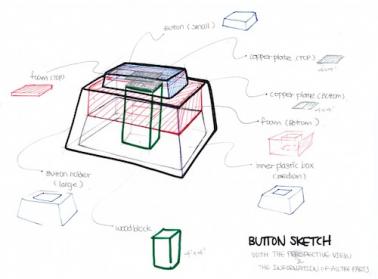 Button (small)
copper plate (TOP)
foam (TOP)
copper plate (Bottom)
foam (Bottom)
inner plastic box
(medium)
Button holder
(large)
wood block
BUTTON SKETCH
WITH THE PERSPECTIVE VIEW
&
THE INFORMATION OF ALL THE PARTS